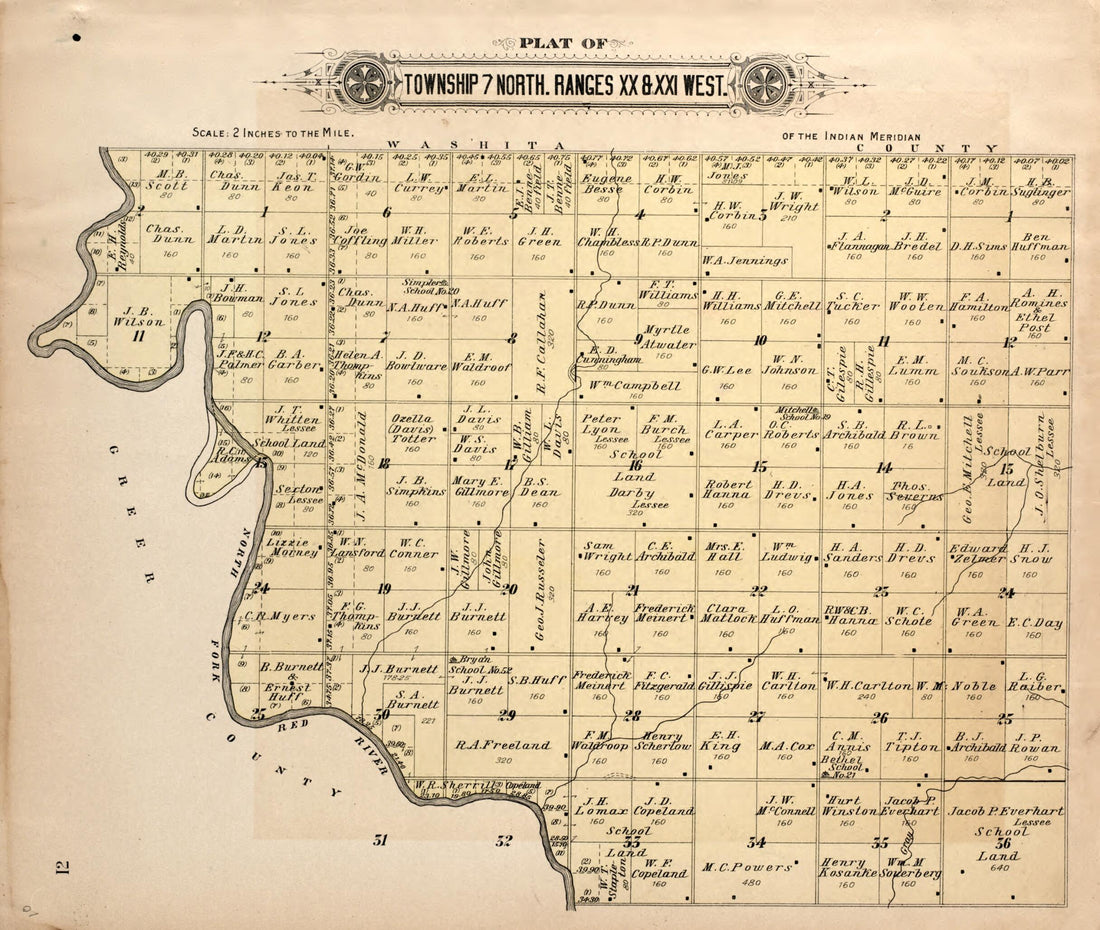 PLAT OF
TOWNSHIP 7 NORTH. RANGES XX & XXI WEST.
SCALE: 2 INCHES TO THE MILE.
OF THE INDIAN MERIDIAN
WASHITA COUNTY
M.B. Scott 80
Chas. Dunn 80
Jas. T. Keon 80
G.W. Gordin
L.W. Currey 80
E.L. Martin 80
Eugene Besse 80
H.W. Corbin 80
M.J. Jones
H.W. Corbin 160
J.W. Wright 210
W.L. Wilson 80
J.D. McGuire 80
J.M. Corbin 80
H.B. Suglinger 80
2 1 6 5 4 3 2 1
E.H. Reynolds 40
Chas. Dunn 160
L.D. Martin 160
S.L. Jones 160
Joe Coffling 80
W.H. Miller 160
W.E. Roberts 160
J.H. Green 160
W.H. Chambless
R.P. Dunn 160
W.A. Jennings
J.A. Flannagan 160
J.H. Bredel 160
D.H. Sims 160
Ben Huffman 160
J.B. Wilson
J.H. Bowman 160
S.L. Jones 160
Chas. Dunn 80
Simpler School No. 20
N.A. Huff 160
N.A. Huff 160
R.F. Callahan 320
R.P. Dunn 160
E.T. Williams 80
Myrtle Atwater 160
H.H. Williams 160
G.E. Mitchell 160
S.C. Tucker 160
W.W. Wooten 160
F.A. Hamilton 160
A.H. Romines & Ethel Post 160
11 12 7 8 9 10 11 12
J.F. & H.C. Palmer 80
B.A. Garber 160
Helen A. Thompkins 80
J.D. Bowlware 160
E.M. Waldroof 160
E.D. Cunningham
Wm Campbell 160
G.W. Lee 160
W.N. Johnson 160
C.T. Gillespie 80
R.H. Gillespie 80
E.M. Lumm 160
M.C. Soukson 160
A.W. Parr 160
J.T. Whitten Lessee
School Land
R.C. Adams
Sexton Lessee 80
J.A. McDonald 160
Ozella (Davis) Totter 160
J.L. Davis 80
W.S. Davis 80
W.B. Gilliam 80
W.L. Davis 80
Peter Lyon Lessee 160
F.M. Burch Lessee 160
School Land
Darby Lessee 320
L.A. Carper 160
Mitchell School No. 19
O.C. Roberts 160
S.B. Archibald 160
R.L. Brown 160
Geo. E. Mitchell Lessee 320
School Land
J.O. Shelburn Lessee 320
13 18 17 16 15 14 13
J.B. Simpkins 160
Mary E. Gillmore 80
B.S. Dean 160
Robert Hanna 160
H.D. Drevs 160
H.A. Jones 160
Thos. Severns 160
Lizzie Morney
W.N. Lansford 80
W.C. Conner 160
J.W. Gillmore 80
John Gillmore 80
Geo. J. Russeler 320
Sam Wright 160
C.E. Archibald 160
Mrs. E. Hall 160
Wm Ludwig 160
H.A. Sanders 160
H.D. Drevs 160
Edward Zelmer 160
H.J. Snow 160
24 19 20 21 22 23 24
C.R. Myers
F.G. Thompkins 80
J.J. Burnett 160
J.J. Burnett 160
A.E. Harvey 160
Frederick Meinert 160
Clara Matlock 160
L.O. Huffman 160
RW & C B. Hanna 160
W.C. Schote 160
W.A. Green 160
E.C. Day 160
B. Burnett & Ernest Huff
J.J. Burnett 178.25
S.A. Burnett 221
Bryan School No. 52
J.J. Burnett 160
S.B. Huff 160
Frederick Meinert 160
F.C. Fitzgerald 160
J.J. Gillispie 160
W.H. Carlton 160
W.H. Carlton 240
W.M. Noble 80 160
L.G. Raiber 160
25 30 29 28 27 26 25
R.A. Freeland 320
F.M. Waldroop 160
Henry Scherlow 160
E.H. King 160
M.A. Cox 160
C.M. Annis 160
Bethel School No. 21
T.J. Tipton 160
B.J. Archibald 160
J.P. Rowan 160
W.R. Sherrill
Copeland
J.H. Lomax 160
J.D. Copeland 160
School Land
J.W. McConnell 160
Hurt Winston 160
Jacob P. Everhart 160
Jacob P. Everhart Lessee
School Land 640
31 32 33 34 35 36
W.T. Stapleton 80
W.F. Copeland 160
M.C. Powers 480
Henry Kosanke 160
Wm. M Souerberg 160
Gray
NORTH FORK RED RIVER
GREER COUNTY
12